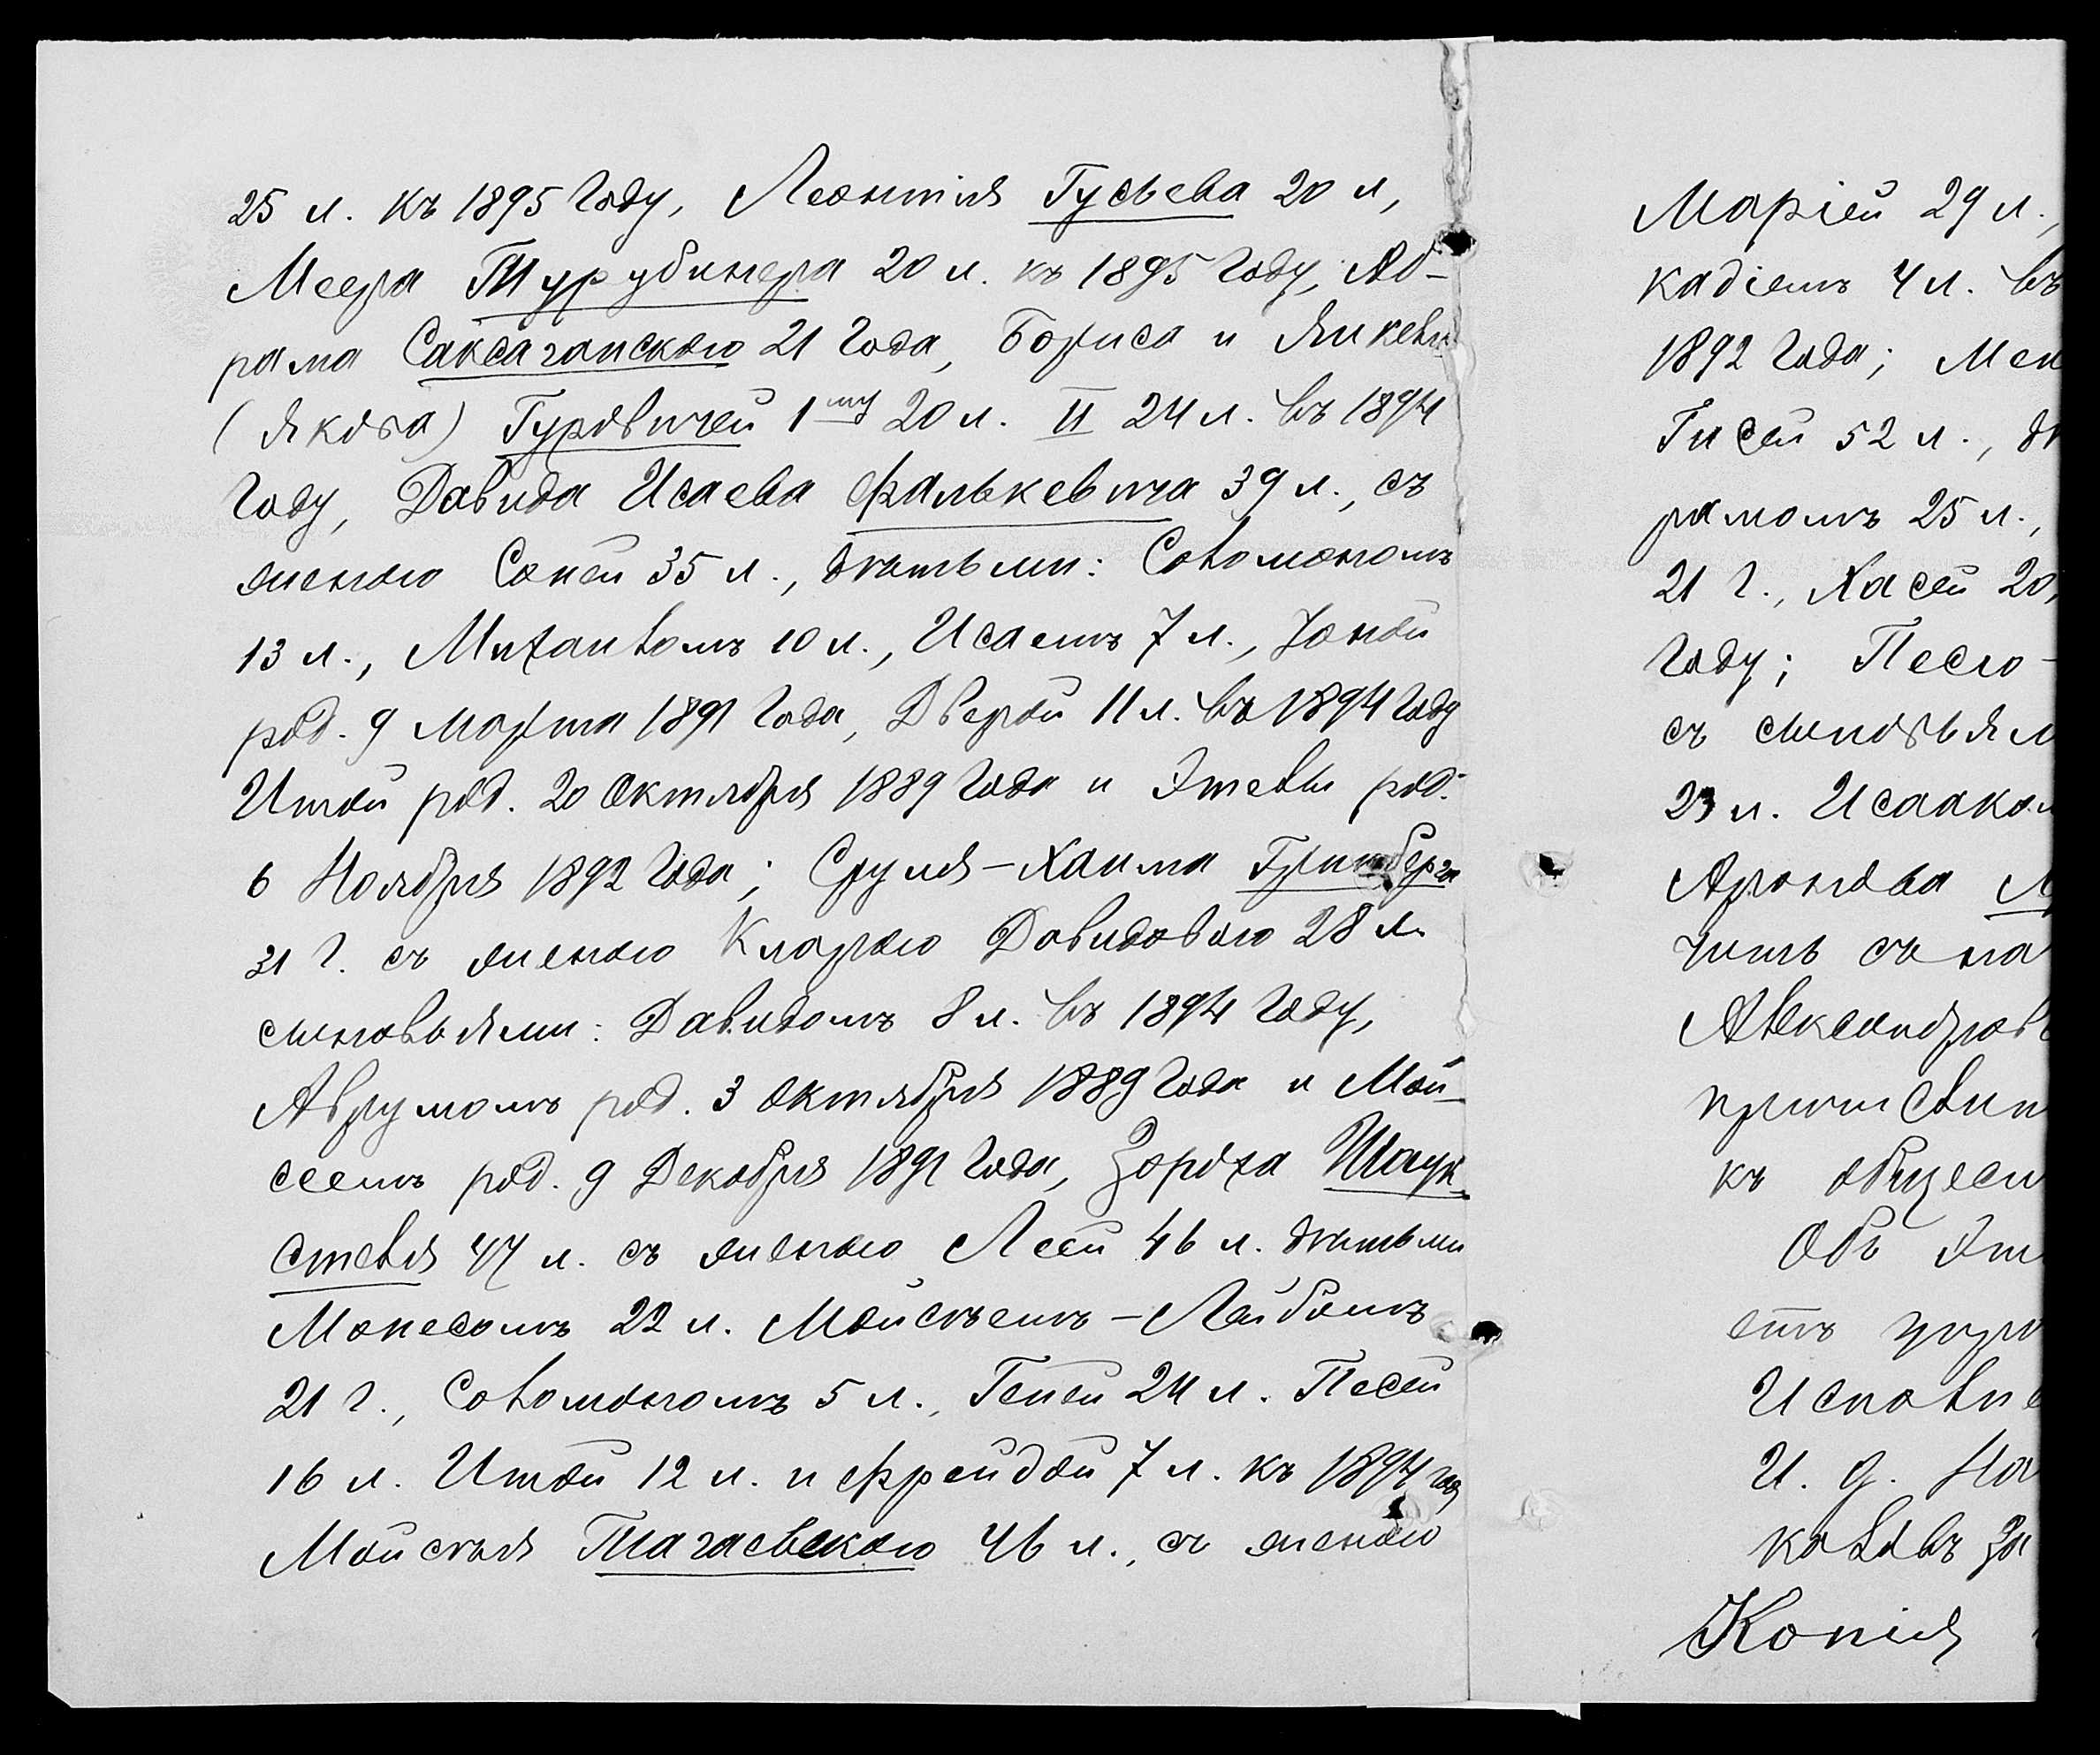 25 л. къ 1895 году, Леонтія Гусьева 20 л,
Меера Турубинера 20 л. къ 1895 году, Аб-
рама Саксаганскаго 21 года, Бориса и Янкеля
(Якова) Гуровичей 1му 20 л. II 24 л. въ 1894
году, Давида Исаева Фалькевича 39 л., съ
женою Соней 35 л., дѣтьми: Соломономъ
13 л., Михаиломъ 10 л., Исаемъ 7 л.,
род. 9 марта 1891 года, Дверой 11 л. въ 1894 году
Итой род. 20 Октября 1889 года и Этель род.
6 Ноября 1892 года; Сруля-Хаима Гринберга
31 г. съ женою Кларою Давидовою 28 л.
сыновьями: Давидомъ 8 л. въ 1894 году,
Аврумомъ род. 3 Октября 1889 года и Мой-
сеемъ род. 9 Декабря 1891 года, Зороха
47 л. съ женою Леей 46 л. дѣтьми
Монесомъ 22 л. Мойсѣемъ-Лейбомъ
21 г., Соломономъ 5 л., Геней 24 л. Песей
16 л. Итой 12 л. и Фрейдой 7 л. къ 1894 году
Мойсѣя Тагаевскаго 46 л., съ женою
Маріей 29 л.,
кадіемъ 4 л. въ
1892 года; Мен
Гисей 52 л., дѣ
рамомъ 25 л.,
21 г., Хасей 20
году; Песю-
съ сыновьям
23 л. Исааком
Аронова
чить съ на
Александров
причисвин
къ общест
Объ эт
етъ упр
Исполне
И. д. На
кавъ За
Копія